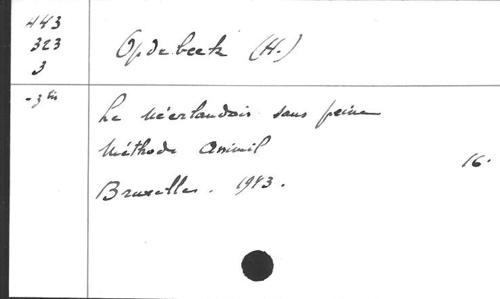 443
323
3
Opdebeek (H.)
- 3 bis
Le néerlandais sans peine
Méthode Assimil
16.
Bruxelles. 1943.